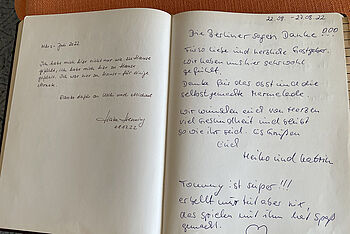 März - Juli 2022
Ich habe mich hier nicht nur wie zu Hause
gefühlt, ich habe mich hier zu Hause
gefühlt. Ich war hier zu Hause - für einige
Monate.
Danke dafür an Uschi und Michael
22.08. - 27.08.22
Die Berliner sagen Danke!
Für so liebe und herzliche Gastgeber.
Wir haben uns hier sehr wohl
gefühlt.
Danke für das Obst und die
selbstgemachte Marmelade.
Wir wünschen euch von Herzen
viel Gesundheit und bleibt
so wie ihr seid. Es Grüßen
Euch
Heiko und Kathrin
Tommy ist super!!!
er hat mir
das spielen mit ihm hat Spaß
gemacht.